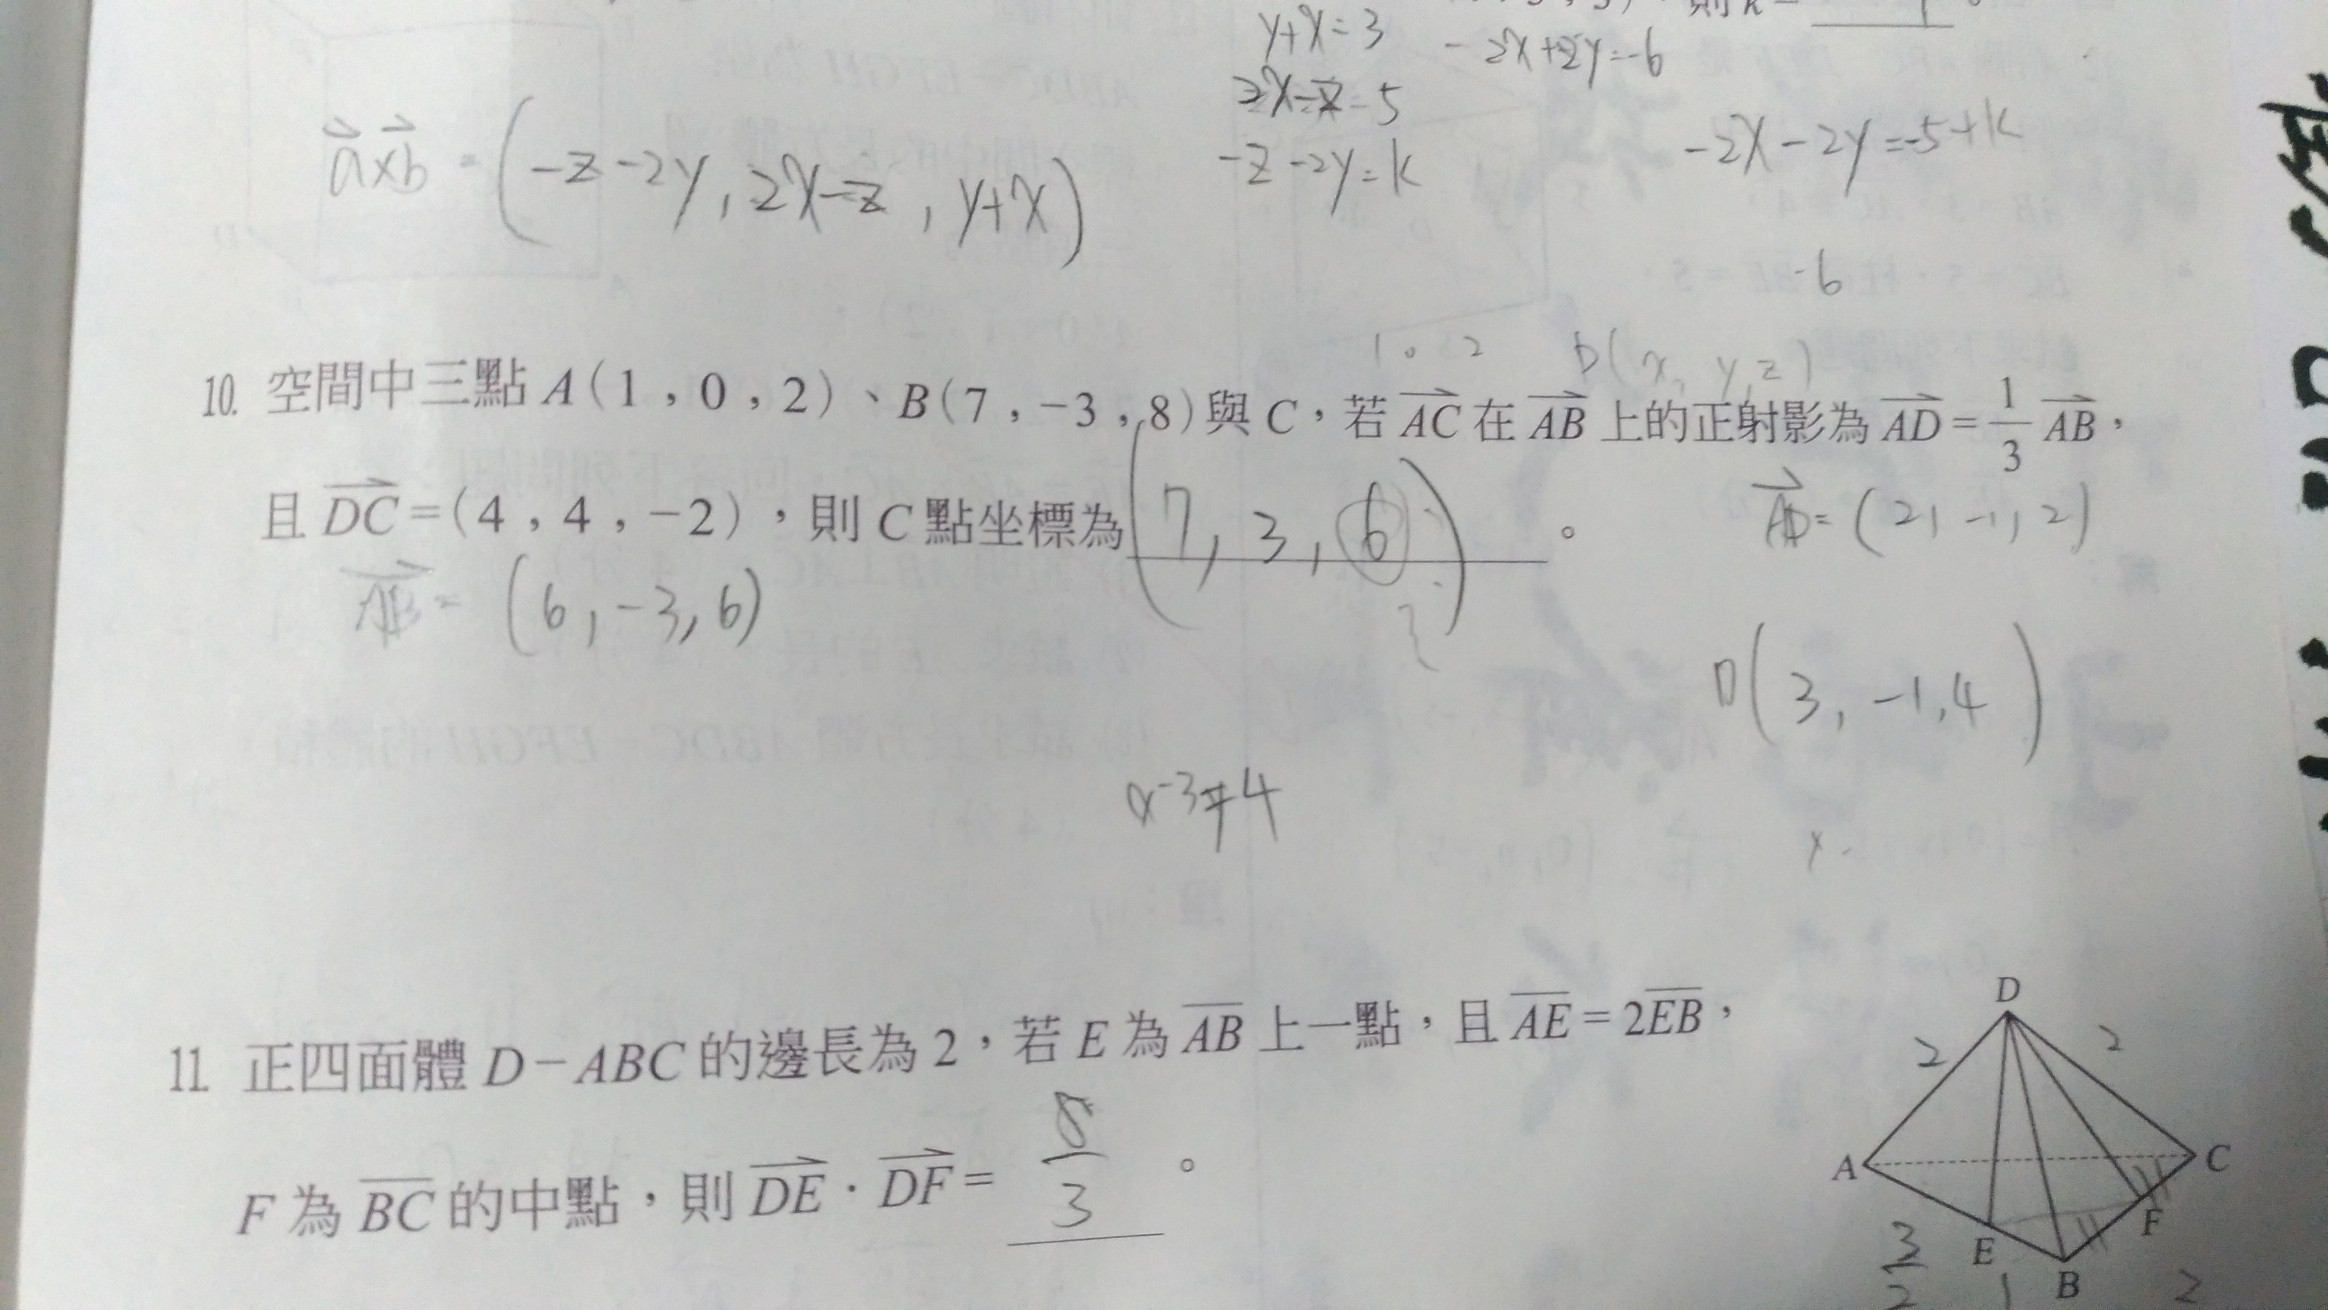 則 k =
y+x=3
-2x+2y=-6
2x-z=5
-z-2y=k
-2x-2y=-5+k
a×b = (-z-2y, 2x-z, y+x)
-6
1 0 2
D(x, y, z)
10. 空間中三點 A(1,0,2)、B(7,-3,8)與 C,若 AC 在 AB 上的正射影為 AD = 1/3 AB,
且 DC=(4,4,-2),則 C 點坐標為 (7, 3, 6) 。
AD = (2, -1, 2)
AB = (6, -3, 6)
D(3, -1, 4)
11. 正四面體 D-ABC 的邊長為 2,若 E 為 AB 上一點,且 AE = 2EB,
F 為 BC 的中點,則 DE · DF = 8/3 。
D
2 2
A C
F
E
B
3/2 1 2